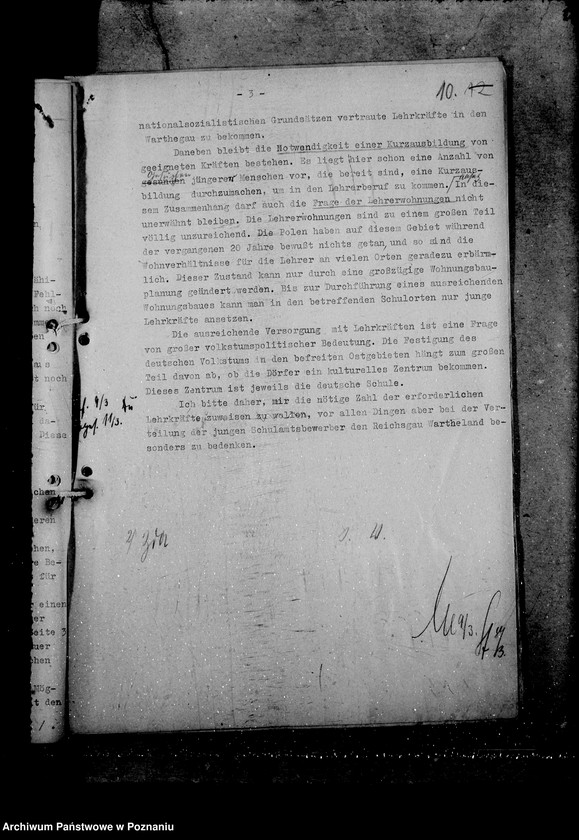 - 3 -
10. 12
nationalsozialistischen Grundsätzen vertraute Lehrkräfte in den
Warthegau zu bekommen.
Daneben bleibt die Notwendigkeit einer Kurzausbildung von
geeigneten Kräften bestehen. Es liegt hier schon eine Anzahl von
jüngeren Menschen vor, die bereit sind, eine Kurzaus-
bildung durchzumachen, um in den Lehrberuf zu kommen. In die-
sem Zusammenhang darf auch die Frage der Lehrerwohnungen nicht
unerwähnt bleiben. Die Lehrerwohnungen sind zu einem großen Teil
völlig unzureichend. Die Polen haben auf diesem Gebiet während
der vergangenen 20 Jahre bewußt nichts getan, und so sind die
Wohnverhältnisse für die Lehrer an vielen Orten geradezu erbärm-
lich. Dieser Zustand kann nur durch eine großzügige Wohnungsbau-
planung geändert werden. Bis zur Durchführung eines ausreichenden
Wohnungsbaues kann man in den betreffenden Schulorten nur junge
Lehrkräfte ansetzen.
Die ausreichende Versorgung mit Lehrkräften ist eine Frage
von großer volkstumspolitischer Bedeutung. Die Festigung des
deutschen Volkstums in den befreiten Ostgebieten hängt zum großen
Teil davon ab, ob die Dörfer ein kulturelles Zentrum bekommen.
Dieses Zentrum ist jeweils die deutsche Schule.
Ich bitte daher, mir die nötige Zahl der erforderlichen
Lehrkräfte zuweisen zu wollen, vor allen Dingen aber bei der Ver-
teilung der jungen Schulamtsbewerber den Reichsgau Wartheland be-
sonders zu bedenken.
Archiwum Państwowe w Poznaniu